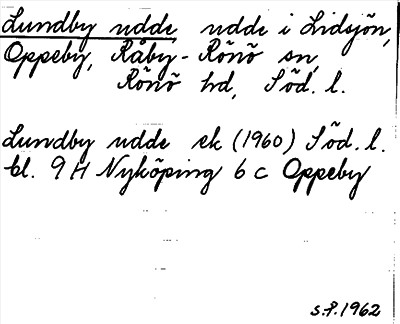 Lundby udde, udde i Lidsjön,
Oppeby, Råby-Rönö sn,
Rönö hd, Söd. l.
Lundby udde ek (1960) Söd. l.
bl. 9 H Nyköping 6 c Oppeby
s.f. 1962